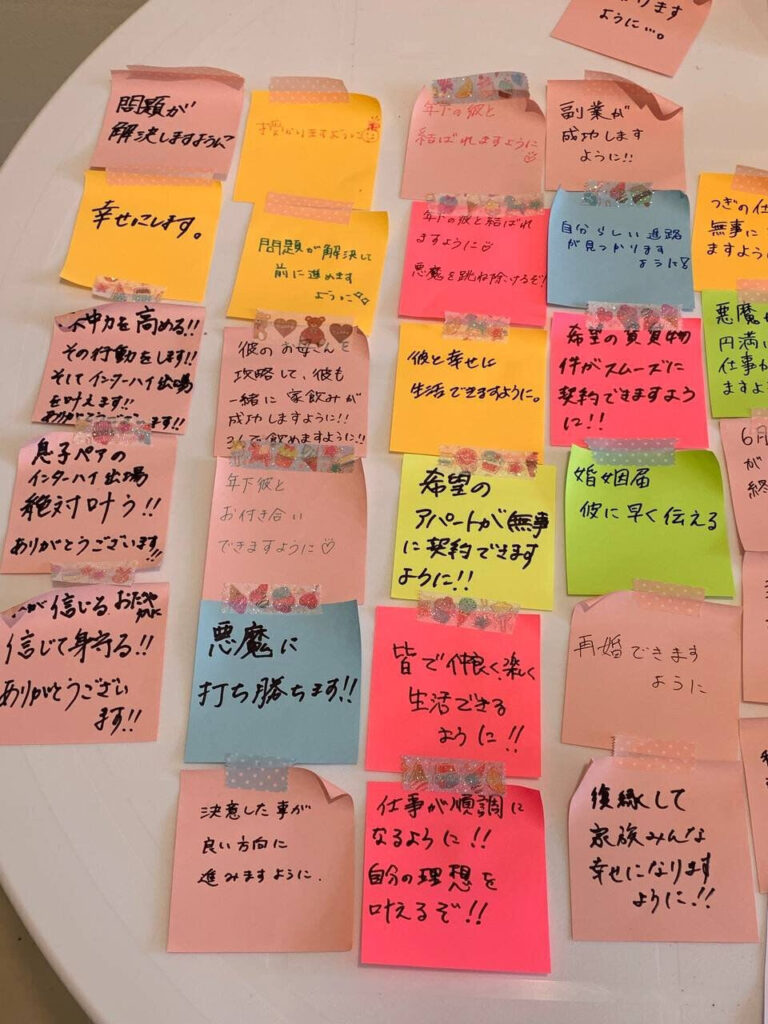 ります
ように…。
問題が
解決しますように
授かりますように
年下の彼と
結ばれますように♡
副業が
成功します
ように!!
幸せにします。
問題が解決して
前に進めます
ように
年下の彼と結ばれ
ますように♡
悪魔を跳ね除けるぞ!
自分らしい進路
が見つかります
ように
つぎの仕
無事に
ますよう
力を高める!!
その行動をします!!
そしてインターハイ出場
を叶えます!!
ありがとうございます!!
彼のお母さんを
攻略して、彼も
一緒に家飲みが
成功しますように!!
3人で飲めますように!!
彼と幸せに
生活できますように。
希望の賃貸物
件がスムーズに
契約できますよう
に!!
悪魔
円満に
仕事が
ますよ
息子ペアの
インターハイ出場
絶対叶う!!
ありがとうございます!!
年下彼と
お付き合い
できますように♡
希望の
アパートが無事
に契約できます
ように!!
婚姻届
彼に早く伝える
6月
が
終
が信じる、おだやかに
信じて見守る!!
ありがとうござい
ます!!
悪魔に
打ち勝ちます!!
皆で仲良く、楽しく
生活できる
ように!!
再婚できます
ように
決意した事が
良い方向に
進みますように.
仕事が順調に
なるように!!
自分の理想を
叶えるぞ!!
復縁して
家族みんな
幸せになります
ように.!!